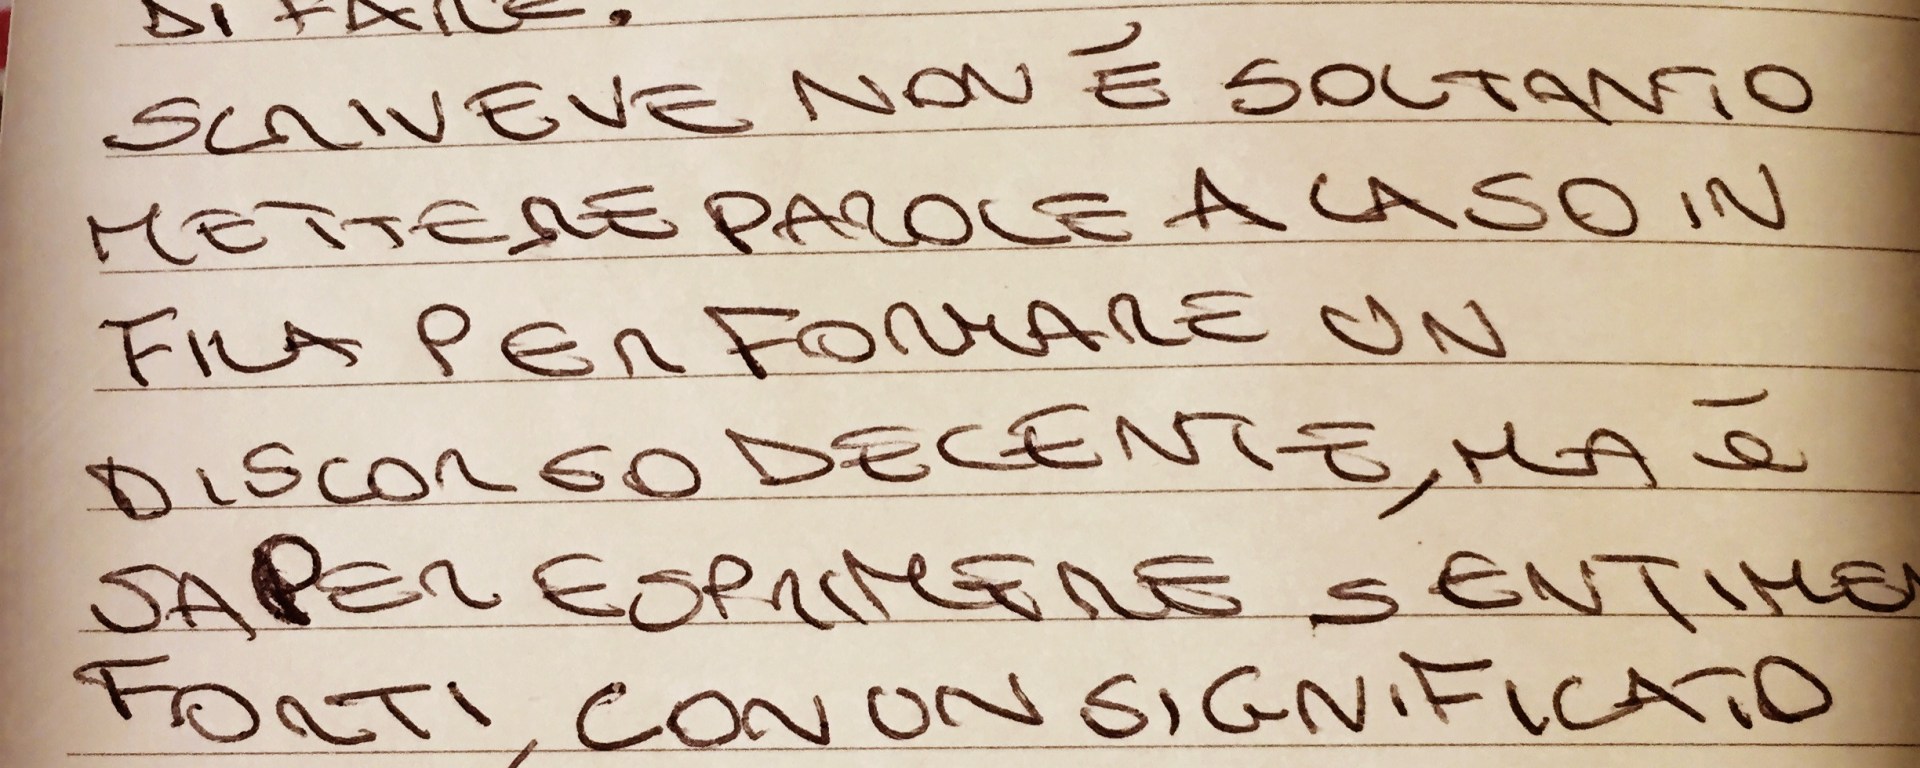 DI FARE.
SCRIVEVE NON È SOLTANTO
METTERE PAROLE A CASO IN
FILA PER FORMARE UN
DISCORSO DECENTE, MA è
SAPER ESPRIMERE SENTIMEN
FORTI, CON UN SIGNIFICATO